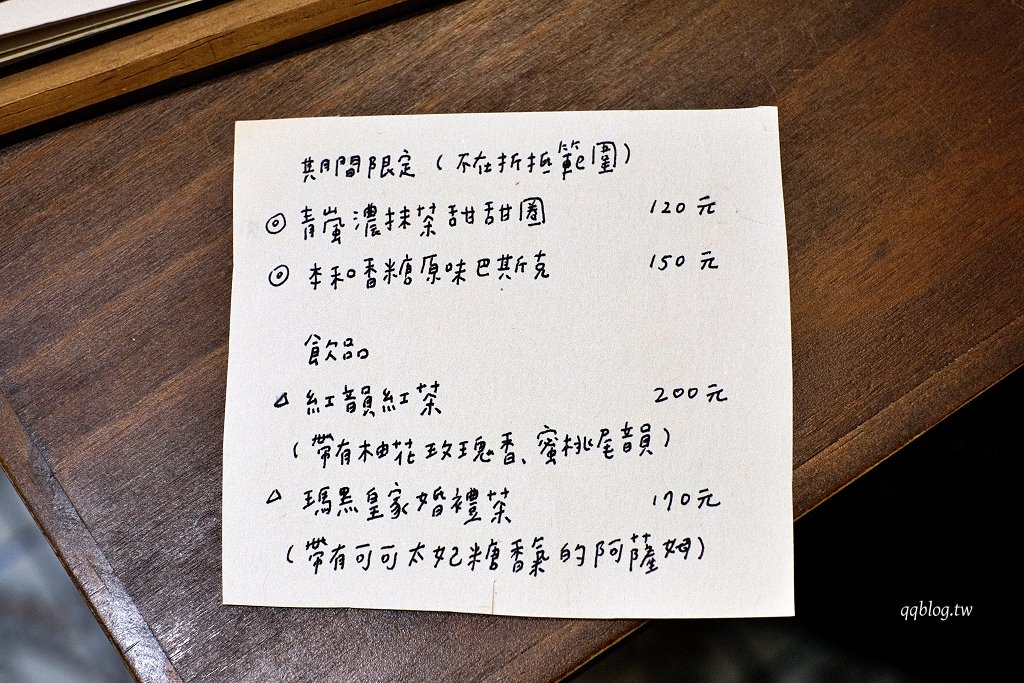 期間限定(不在折抵範圍)
◎ 青嵐濃抹茶甜甜圈 120元
◎ 本和香糖原味巴斯克 150元
飲品
△ 紅韻紅茶 200元
(帶有柚花玫瑰香、蜜桃尾韻)
△ 瑪黑皇家婚禮茶 170元
(帶有可可太妃糖香氣的阿薩姆)
qqblog.tw